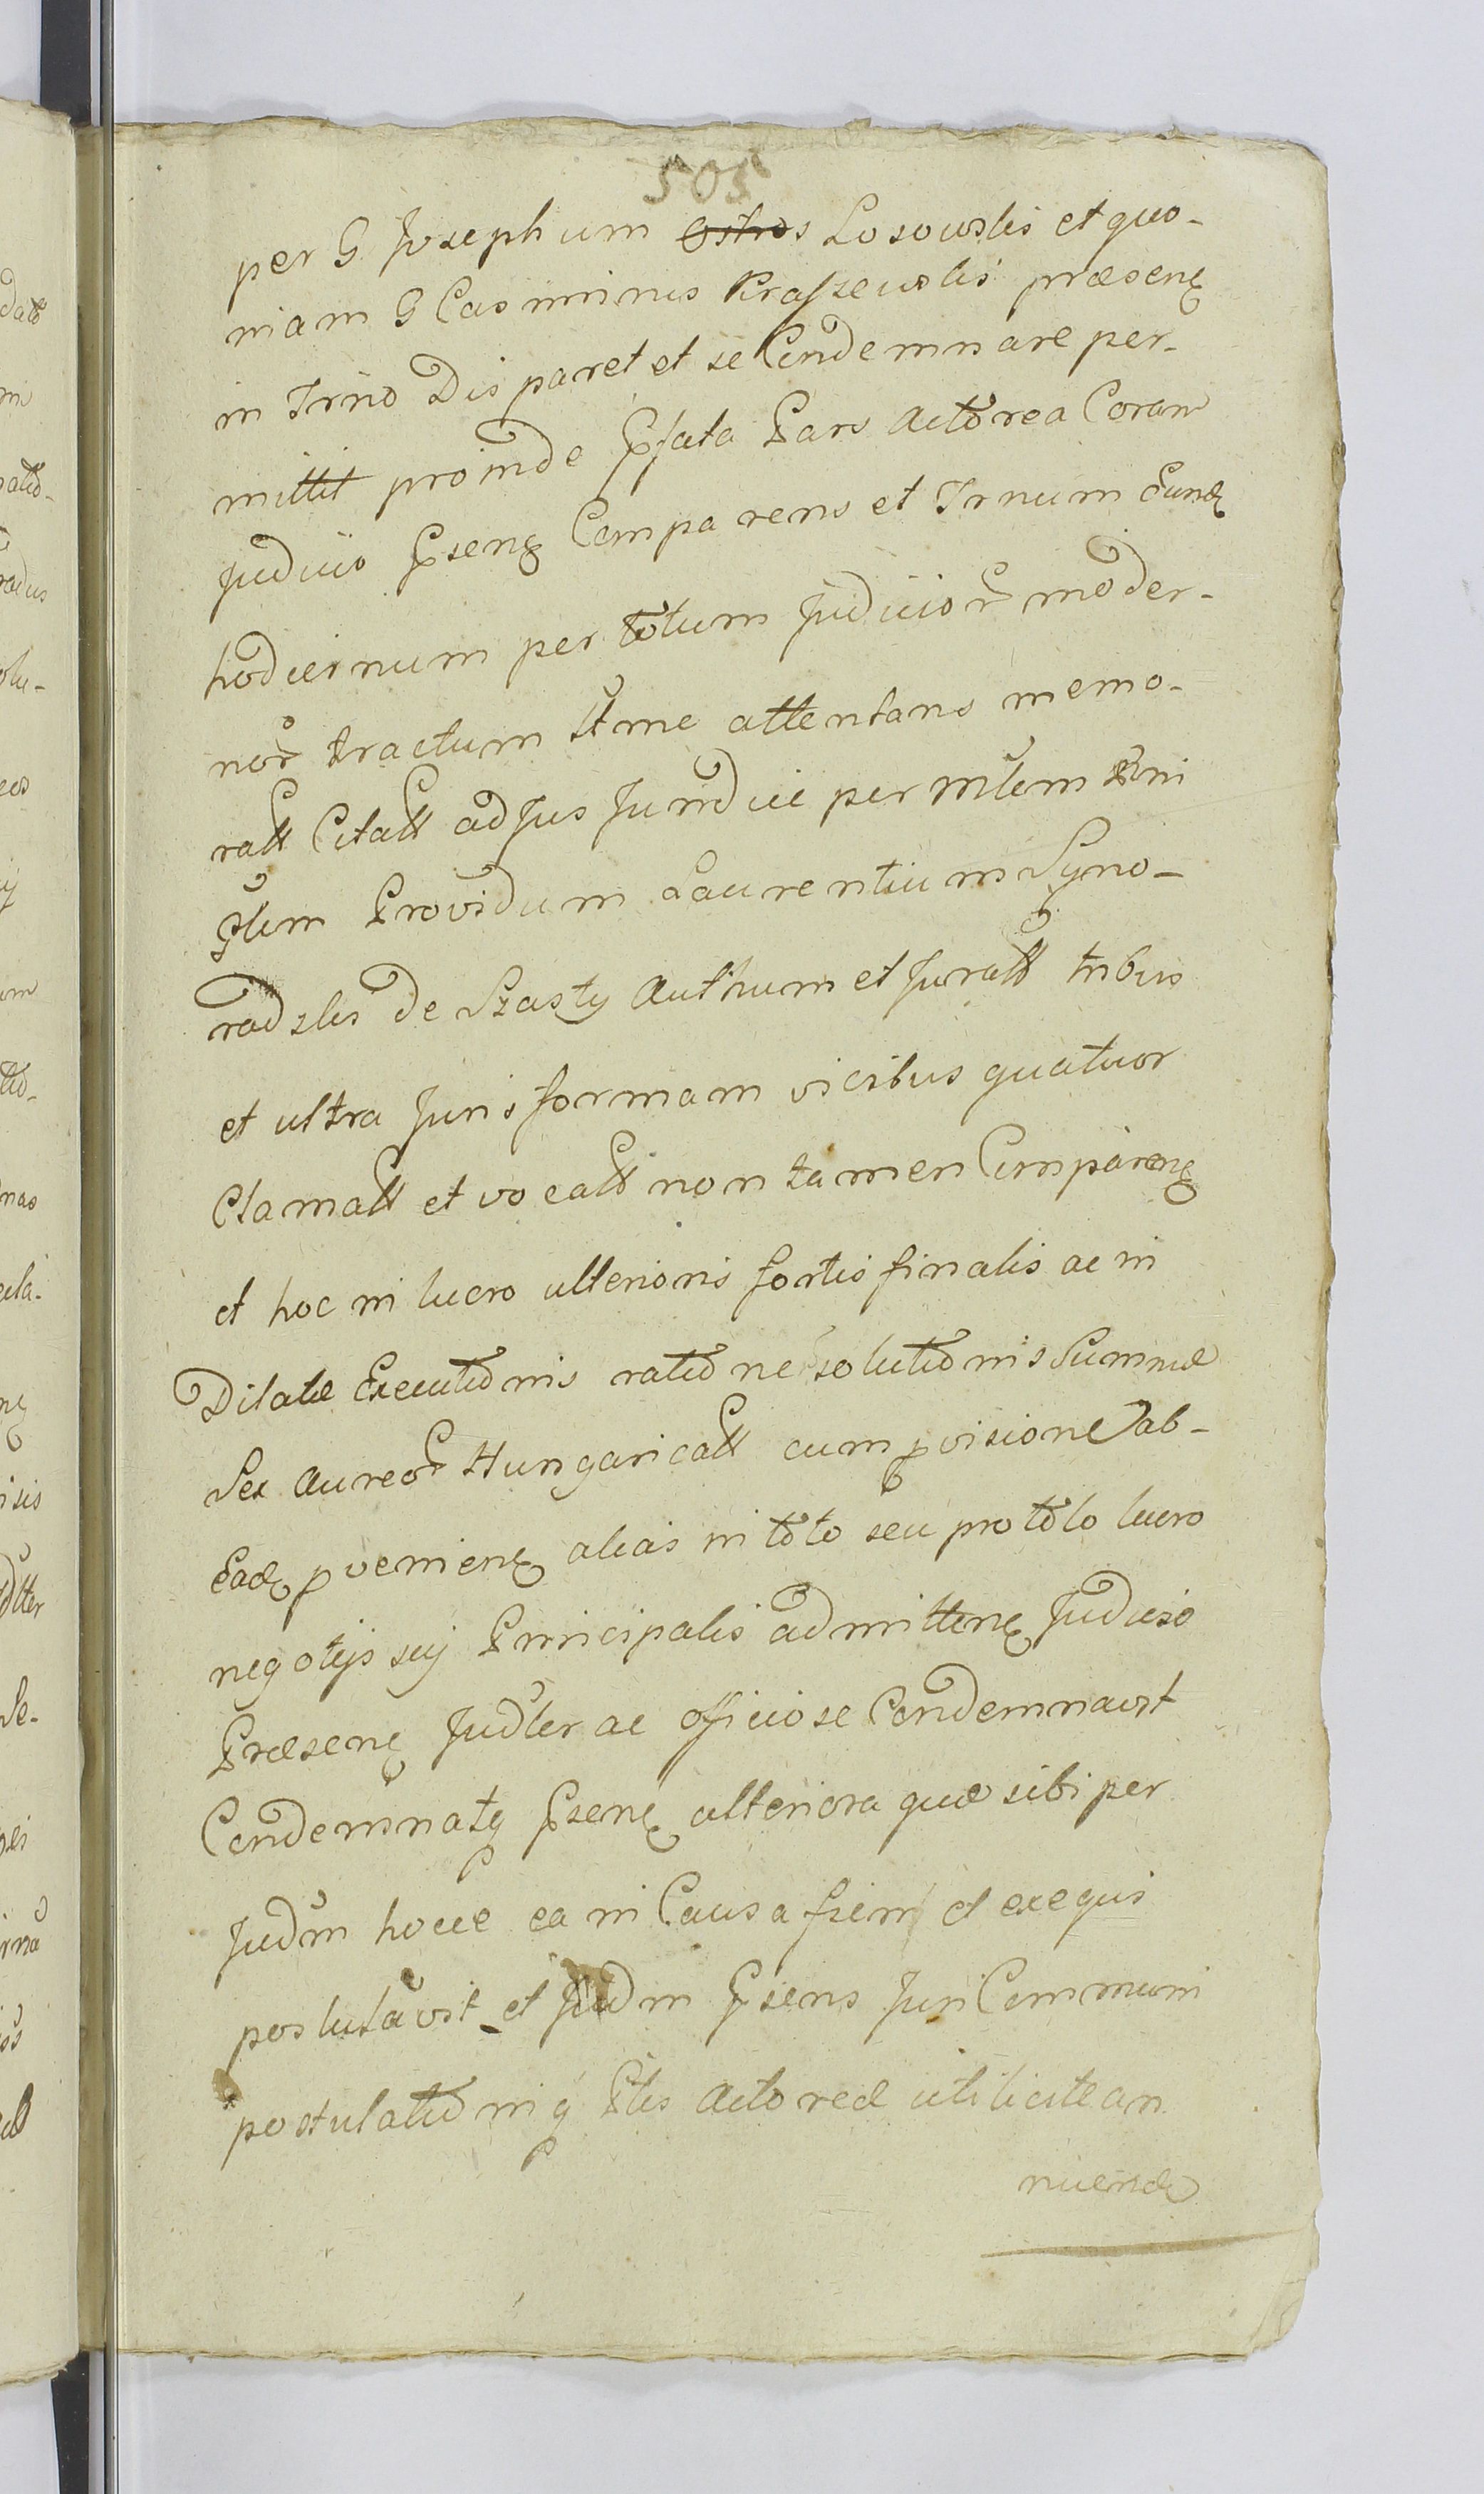 505
per G Josephum Ostros Losowski et quo-
niam G Casimirus Kraszewski præsenę
in Trno Disparet et se Condemnare per-
mittit proinde Pfata Pars Actorea Coram
Judicio Psenę Comparens et Trnum Eundę
hodiernum per totum Judicior moder-
nor tractum ltme attentans memo-
ratt Citatt ad Jus Juridice per Mlem Rni
Glem Providum Laurentium Syno-
radzkis de Szasty Authum et Juratt tribus
et ultra Juris formam vicibus quatuor
Clamatt et vocatt non tamen Comparenę
et hoc in lucro ulterioris sortis finalis ac in
Dilatæ Executionis ratione solutionis Summæ
Sex Aureor Hungaricatt cum pvisione ab-
Eadę pvenienę alias in toto seu pro toto lucro
negotijs sui Principalis admittenę Judicio
Præsenę Judler ac officiose Condemnavit
Condemnatq Psenę ulteriora quæ sibi per
Judm hocce ea in Causa fieri et exequi
postulavit et Judm Psens Juri Communi
postulationiq Ptis Actoreæ utilicitean
nuendę